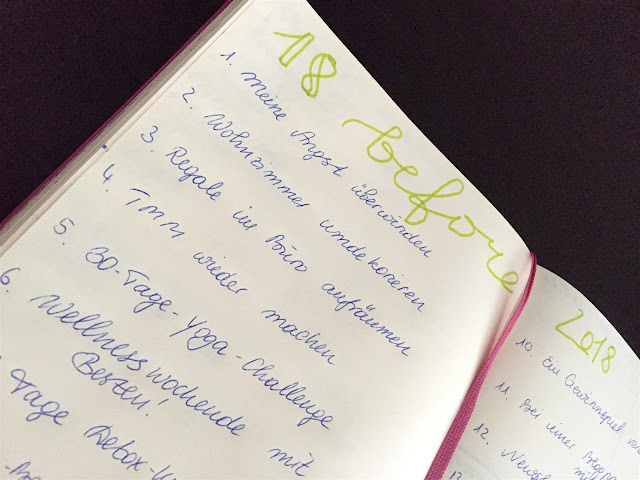 18 before
1. Meine Angst überwinden
2. Wohnzimmer umdekorieren
3. Regale im Büro aufräumen
4. TMM wieder machen
5. 30-Tage-Yoga-Challenge
6. Wellnesswochende mit
Besten!
Tage Detox-
2018
10 Ein Gewinnspiel
11. Bei einer
12.